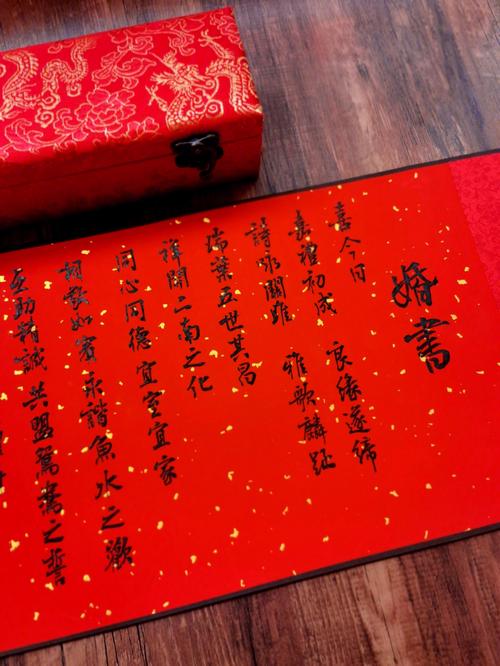 婚書
喜今日
嘉禮初成 良緣遂締
詩詠關雎 雅歌麟趾
瑞葉五世其昌
祥開二南之化
同心同德 宜室宜家
相敬如賓 永諧魚水之歡
互助精誠 共盟鴛鴦之誓